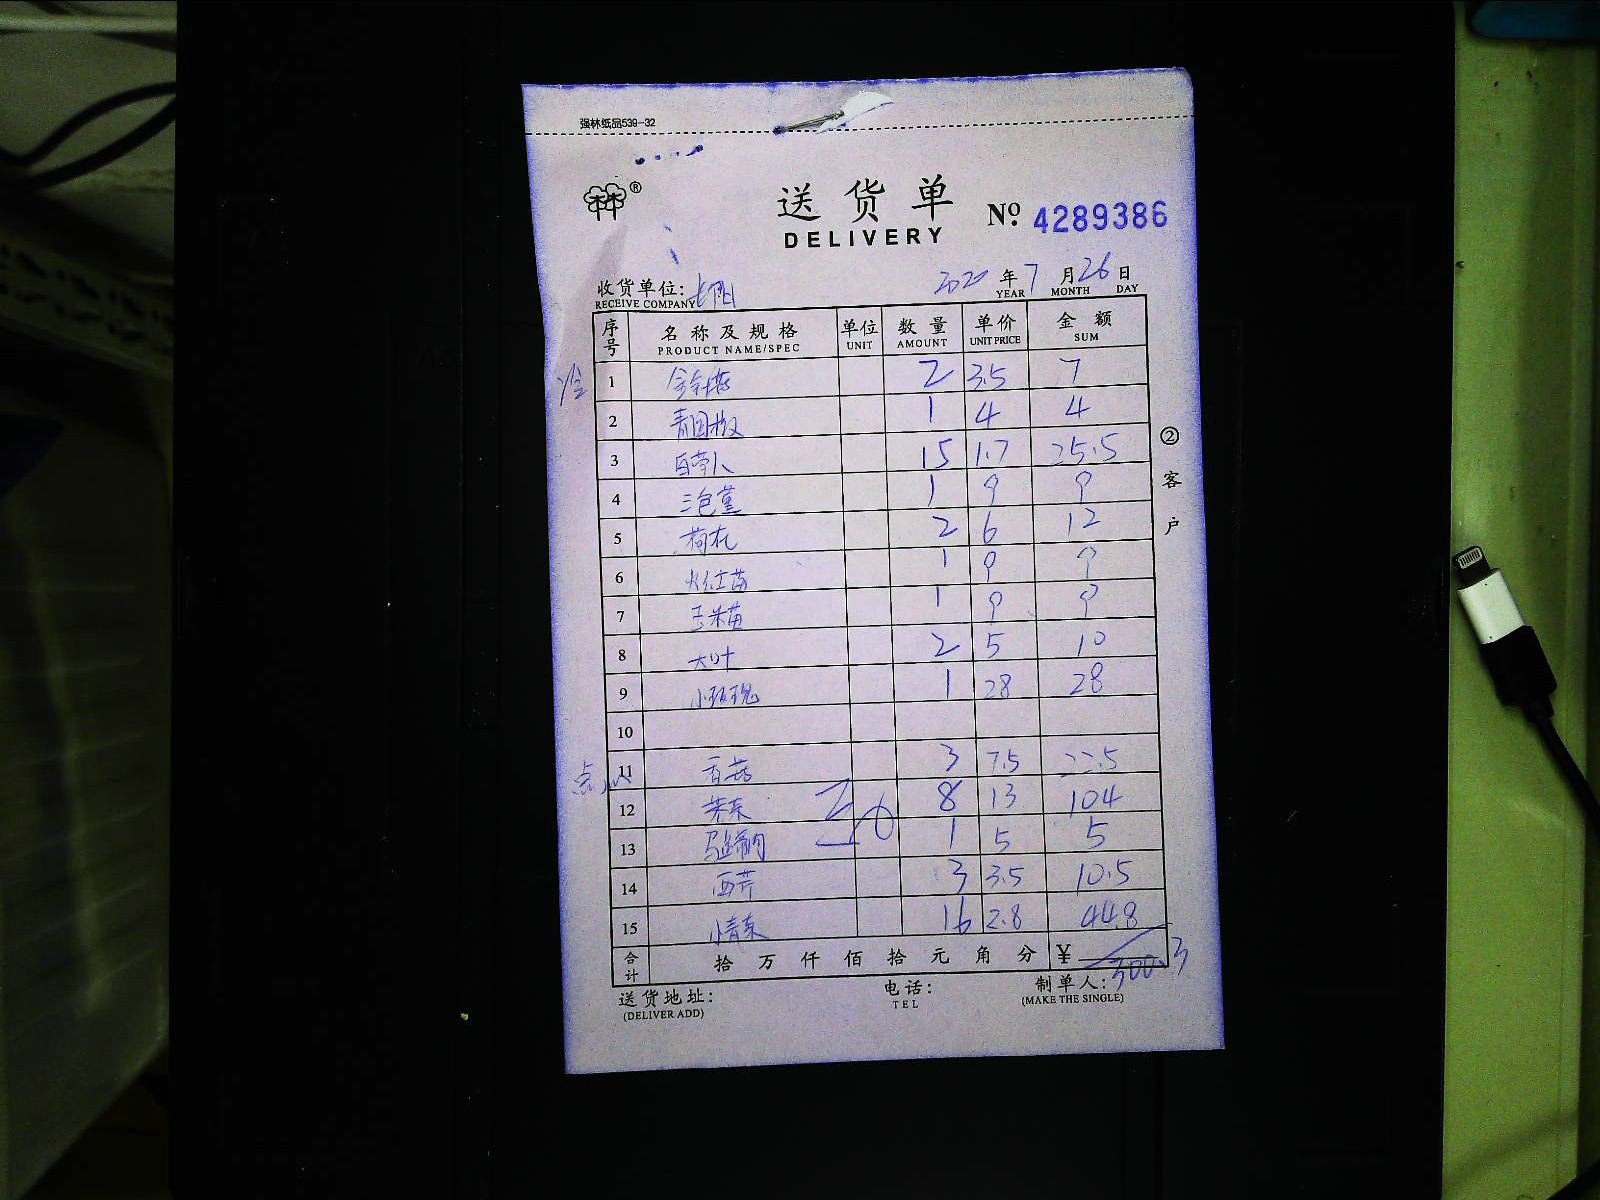 强林纸品539-32
林®
送货单 No. 4289386
DELIVERY
收货单位: 2020 年 7 月 26 日
RECEIVE COMPANY YEAR MONTH DAY
序号 名称及规格 单位 数量 单价 金额
PRODUCT NAME/SPEC UNIT AMOUNT UNIT PRICE SUM
冷 1 金针菇 2 3.5 7
2 青园椒 1 4 4
3 白萝卜 15 1.7 25.5
4 三色堇 1 9 9
5 荷花 2 6 12
6 1 9 9
7 玉米苗 1 9 9
8 大叶 2 5 10
9 小玫瑰 1 28 28
10
点心 11 香菇 3 7.5 22.5
12 荠菜 8 13 104
13 1 5 5
14 西芹 3 3.5 10.5
15 小青菜 16 2.8 44.8
合计 拾 万 仟 佰 拾 元 角 分 ¥ 300.3
② 客户
送货地址: 电话: 制单人:
(DELIVER ADD) TEL (MAKE THE SINGLE)